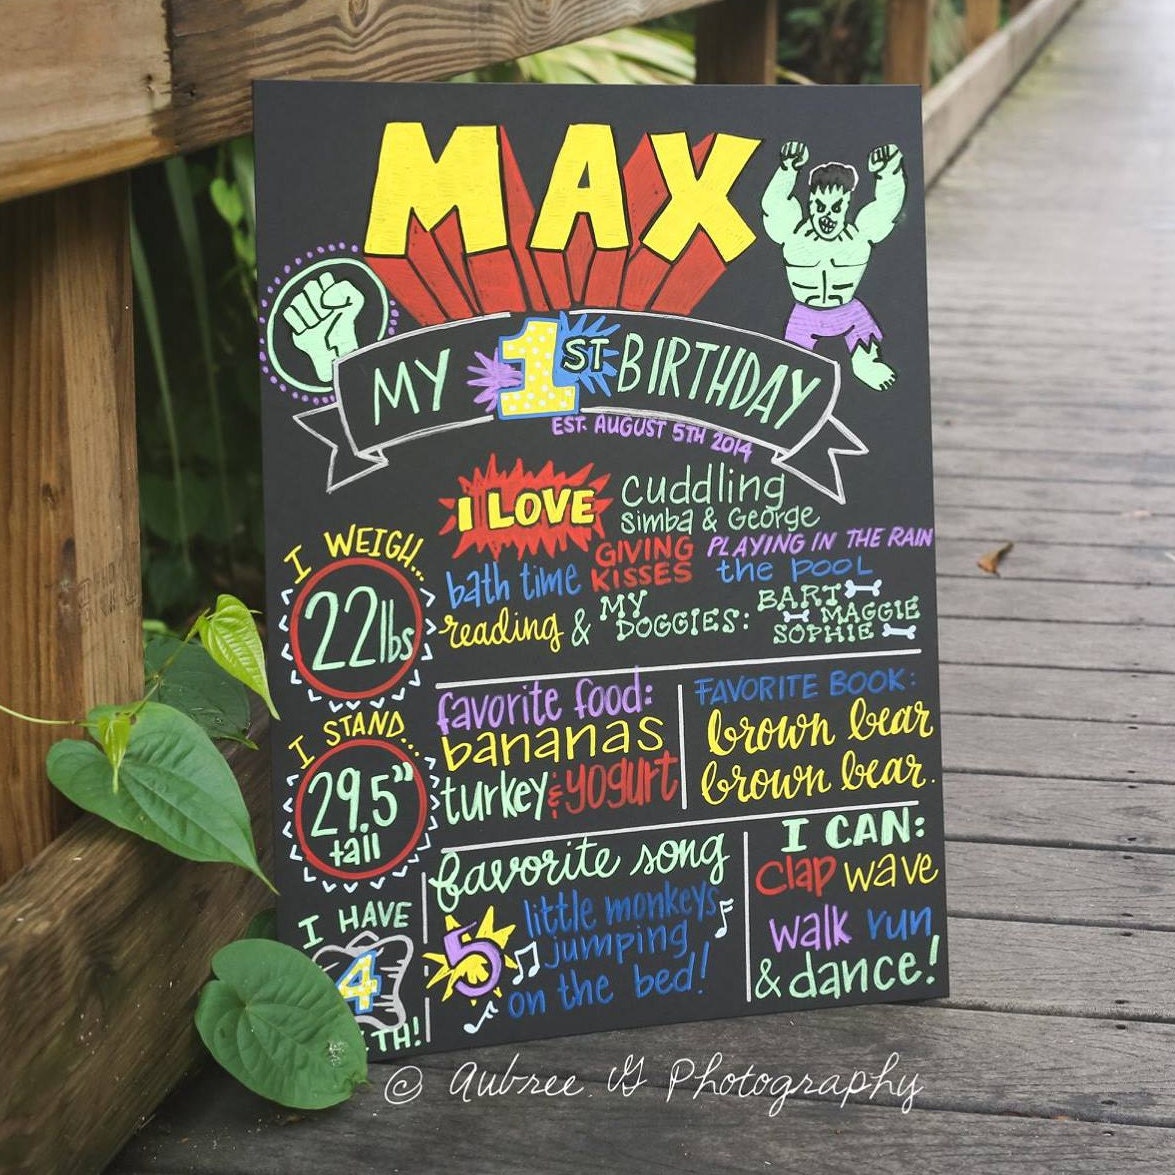 MAX
MY 1ST BIRTHDAY
EST. AUGUST 5TH 2014
I LOVE
cuddling
simba & George
GIVING KISSES
PLAYING IN THE RAIN
bath time
the pool
reading &
MY DOGGIES:
BART
MAGGIE
SOPHIE
I WEIGH...
22lbs
I STAND...
29.5"
tall
I HAVE
4
TH!
favorite food:
bananas
turkey & yogurt
FAVORITE BOOK:
brown bear
brown bear.
favorite song
5 little monkeys
jumping
on the bed!
I CAN:
clap wave
walk run
& dance!
© Aubree G Photography